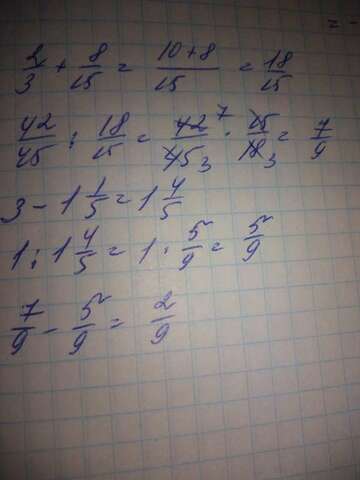 2/3 + 8/15 = (10+8)/15 = 18/15
42/45 : 18/15 = 42 7/45 3 · 15/18 3 = 7/9
3 - 1 1/5 = 1 4/5
1 : 1 4/5 = 1 · 5/9 = 5/9
7/9 - 5/9 = 2/9